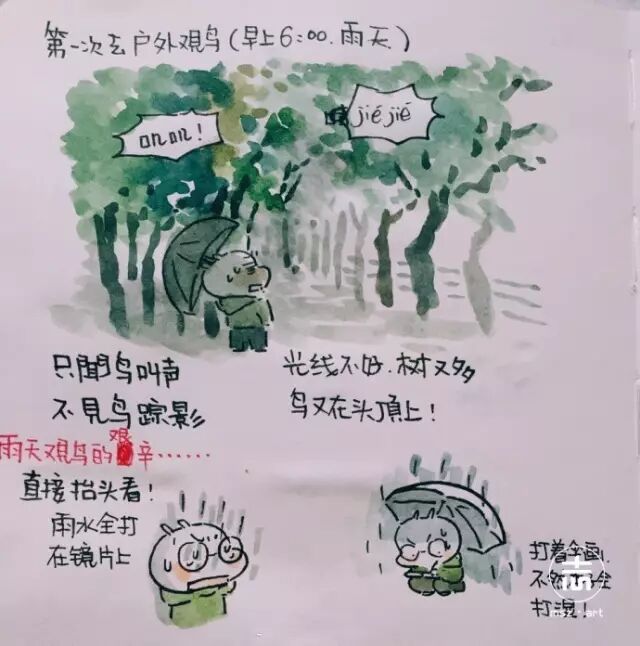 第一次去户外观鸟(早上6:00.雨天.)
叽叽!
jié jié
只聞鸟叫声
不見鸟踪影
光线不好.树又多
鸟又在头頂上!
雨天观鸟的艰辛……
直接抬头看!
雨水全打
在镜片上
打着伞画,
不然
全
打湿!
art